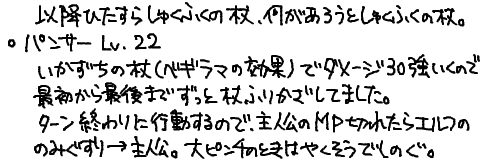 以降ひたすらしゅくふくの杖、何があろうとしゅくふくの杖。
。パンサー Lv.22
いかずちの杖(ベギラマの効果)でダメージ30強いくので
最初から最後までずっと杖ふりかざしてました。
ターン終わりに行動するので、主人公のMP切れたらエルフの
のみぐすり→主人公。大ピンチのときはやくそうでしのぐ。